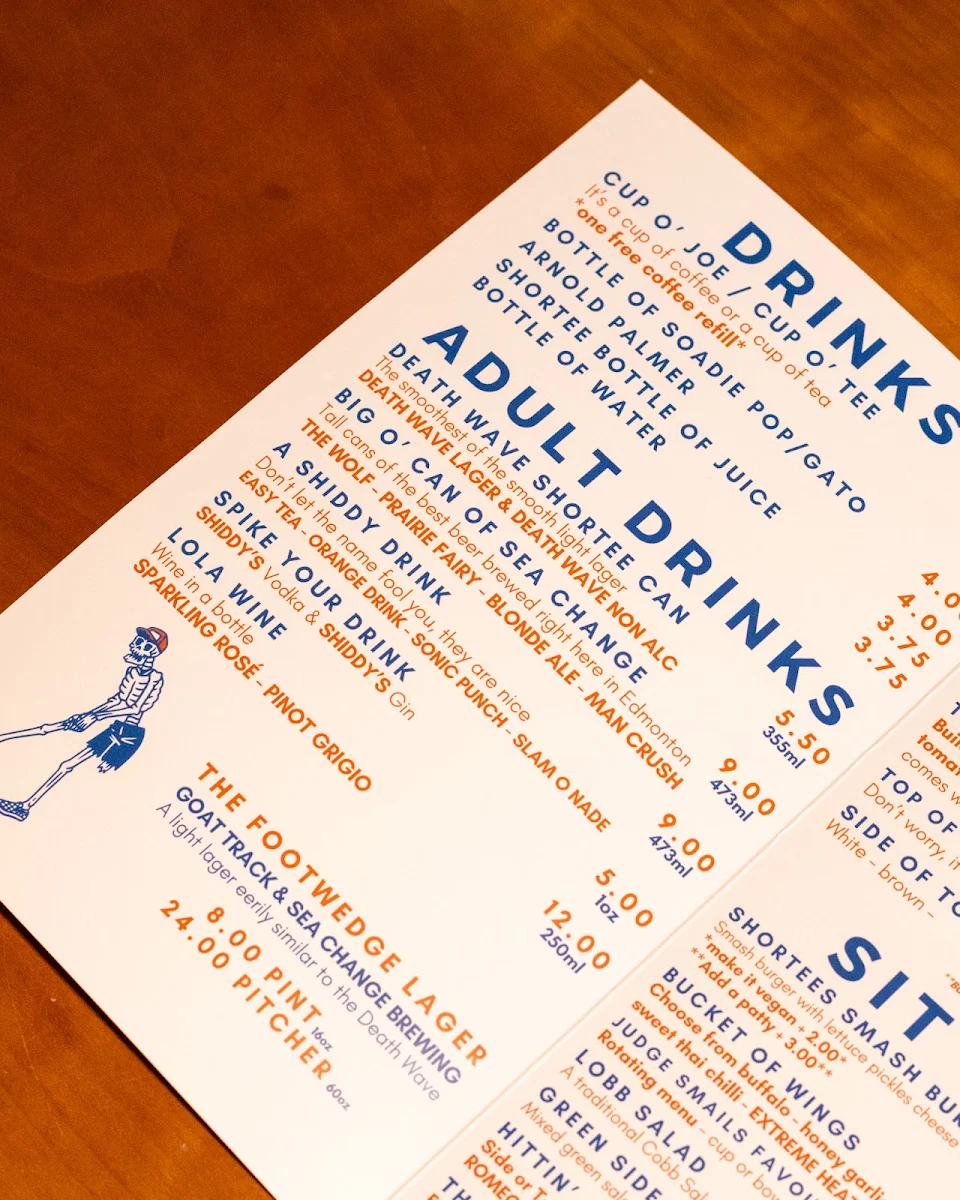 DRINKS
CUP O' JOE / CUP O' TEE
It's a cup of coffee or a cup of tea
*one free coffee refill*
BOTTLE OF SOADIE POP/GATO
ARNOLD PALMER
SHORTEE BOTTLE OF JUICE
BOTTLE OF WATER
4.0
4.00
3.75
3.75
ADULT DRINKS
DEATH WAVE SHORTEE CAN
The smoothest of the smooth light lager
DEATH WAVE LAGER & DEATH WAVE NON ALC
5.50
355ml
BIG O' CAN OF SEA CHANGE
Tall cans of the best beer brewed right here in Edmonton
THE WOLF - PRAIRIE FAIRY - BLONDE ALE - MAN CRUSH
9.00
473ml
A SHIDDY DRINK
Don't let the name fool you, they are nice
EASY TEA - ORANGE DRINK - SONIC PUNCH - SLAM O NADE
9.00
473ml
SPIKE YOUR DRINK
SHIDDY'S Vodka & SHIDDY'S Gin
5.00
1oz
LOLA WINE
Wine in a bottle
SPARKLING ROSÉ - PINOT GRIGIO
12.00
250ml
THE FOOTWEDGE LAGER
GOAT TRACK & SEA CHANGE BREWING
A light lager eerily similar to the Death Wave
8.00 PINT 16oz
24.00 PITCHER 60oz
comes w
TOP OF
Don't worry, it
SIDE OF TO
White - brown -
SIT
SHORTEES SMASH BUR
Smash burger with lettuce pickles cheese
*make it vegan + 2.00*
**Add a patty + 3.00**
BUCKET OF WINGS
Choose from buffalo - honey garlic
sweet thai chilli - EXTREME HEA
JUDGE SMAILS FAVO
Rotating menu - cup or bow
LOBB SALAD
A traditional Cobb Sal
GREEN SIDE
Mixed green sala
HITTIN'
Side or T
ROMEO
TH